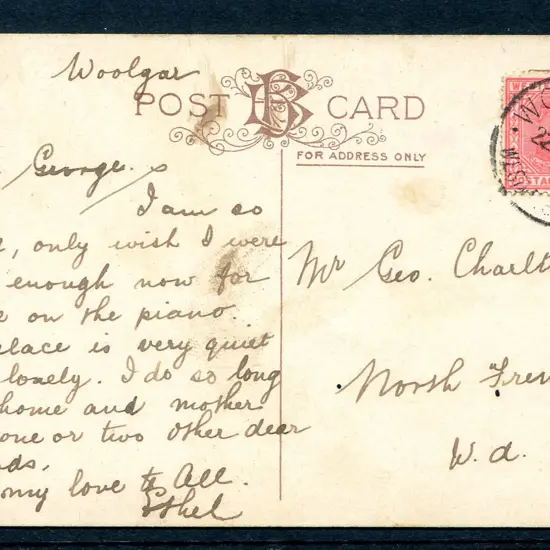 Woolgar
POST CARD
FOR ADDRESS ONLY
George.
I am so
, only wish I were
enough now for
on the piano.
place is very quiet
lonely. I do so long
home and mother
one or two other dear
my love to All.
Ethel
Mr Geo. Charlt
North Frem
W. A.
WE
POSTAG
WO
22
WESTE